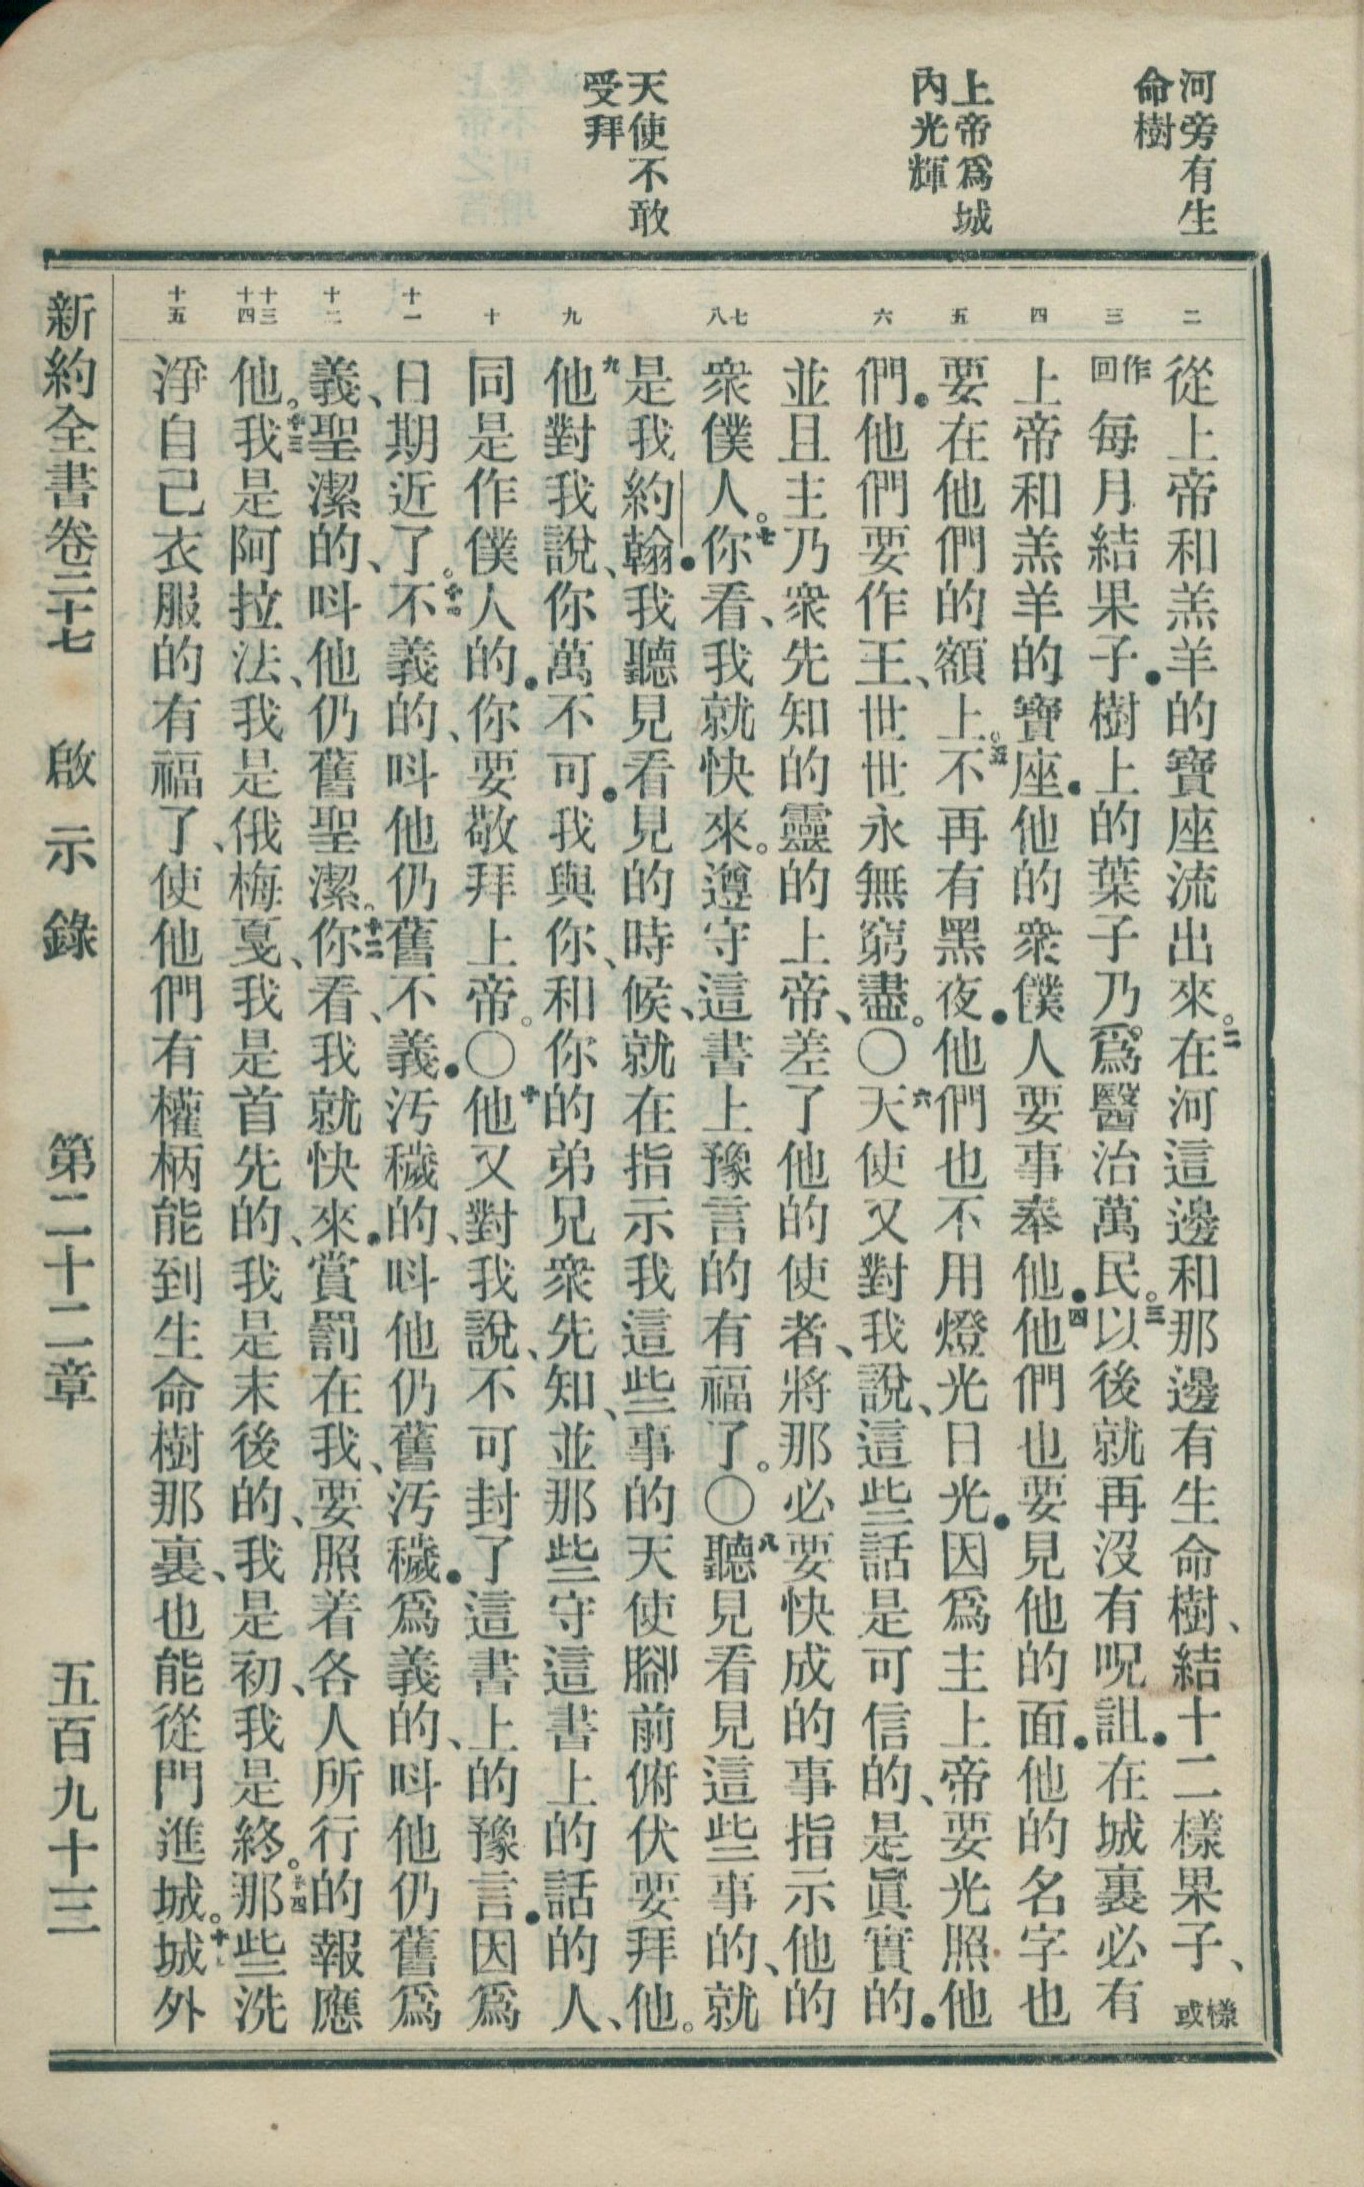 河旁有生
命樹
上帝爲城
內光輝
天使不敢
受拜
二
三
四
五
六
七
八
九
十
十一
十二
十三
十四
十五
從上帝和羔羊的寶座流出來。二在河這邊和那邊有生命樹、結十二樣果子、樣或
作回每月結果子．樹上的葉子乃爲醫治萬民。三以後就再沒有呪詛．在城裏必有
上帝和羔羊的寶座．他的衆僕人要事奉他．四他們也要見他的面．他的名字也
要在他們的額上。五不再有黑夜．他們也不用燈光日光．因爲主上帝要光照他
們．他們要作王、世世永無窮盡。〇六天使又對我說、這些話是可信的、是眞實的．
並且主乃衆先知的靈的上帝、差了他的使者、將那必要快成的事指示他的
衆僕人。七你看、我就快來。遵守這書上豫言的有福了。〇八聽見看見這些事的、就
是我約翰．我聽見看見的時候、就在指示我這些事的天使腳前俯伏要拜他。
九他對我說、你萬不可．我與你、和你的弟兄衆先知、並那些守這書上的話的人、
同是作僕人的．你要敬拜上帝。〇十他又對我說、不可封了這書上的豫言．因爲
日期近了。十一不義的、呌他仍舊不義．汚穢的、呌他仍舊汚穢．爲義的、呌他仍舊爲
義、聖潔的、呌他仍舊聖潔。十二你看、我就快來．賞罰在我、要照着各人所行的報應
他。十三我是阿拉法、我是俄梅戛、我是首先的、我是末後的、我是初、我是終。十四那些洗
淨自己衣服的有福了、使他們有權柄能到生命樹那裏、也能從門進城。十五城外
新約全書卷二十七 啟示錄 第二十二章 五百九十三